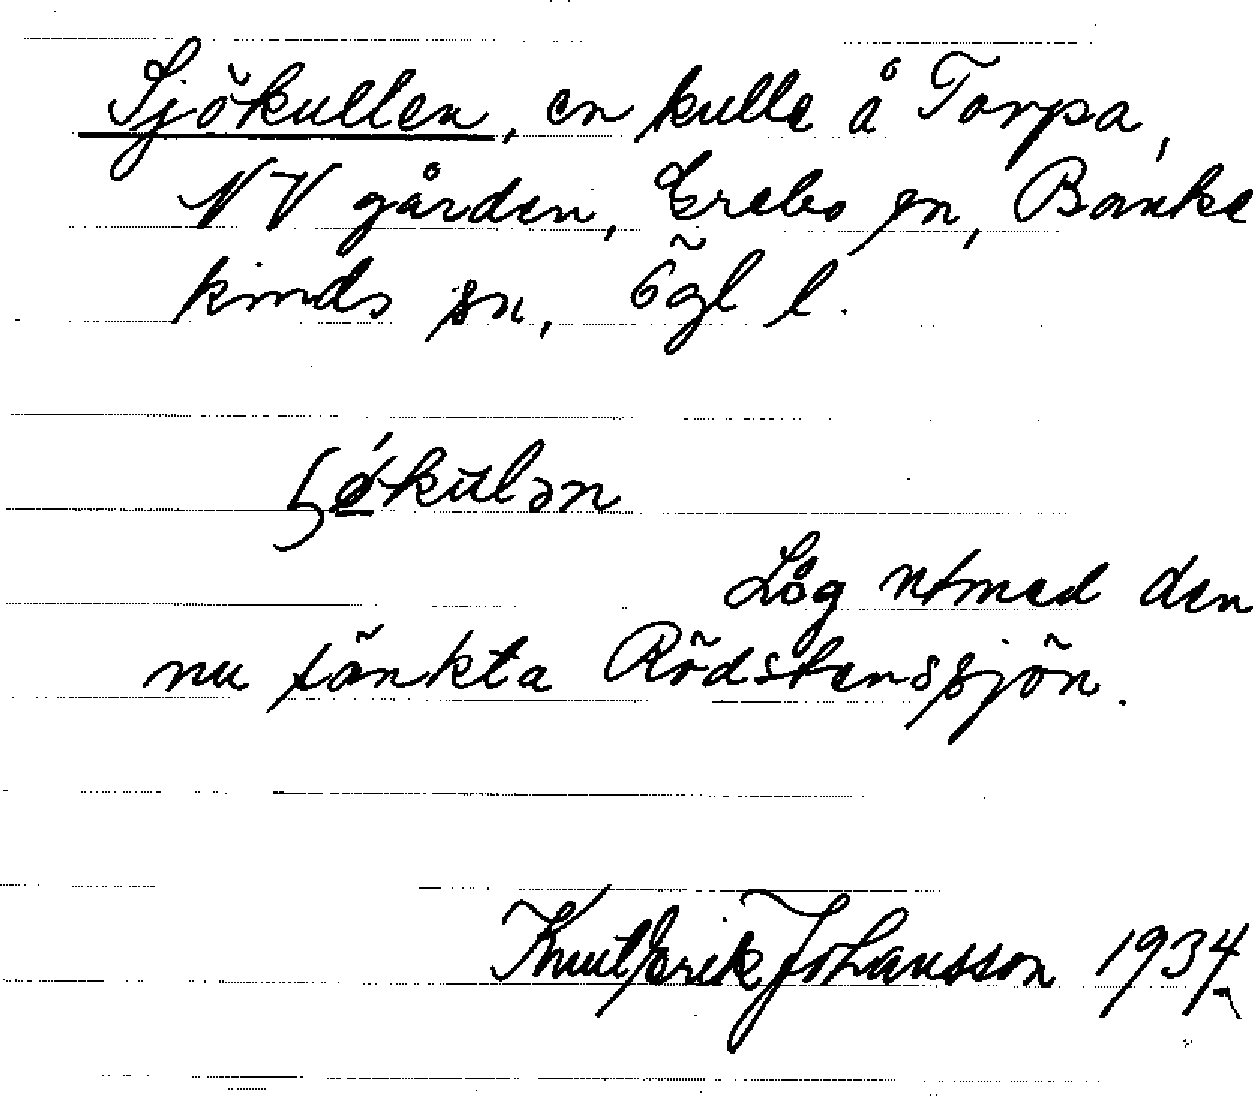 Sjökullen, en kulle å Torpa,
NV gården, Grebo sn, Banke
kinds sn, Ögl l.
Låg utmed den
nu sänkta Rödstenssjön.
Knut Erik Johansson 1934